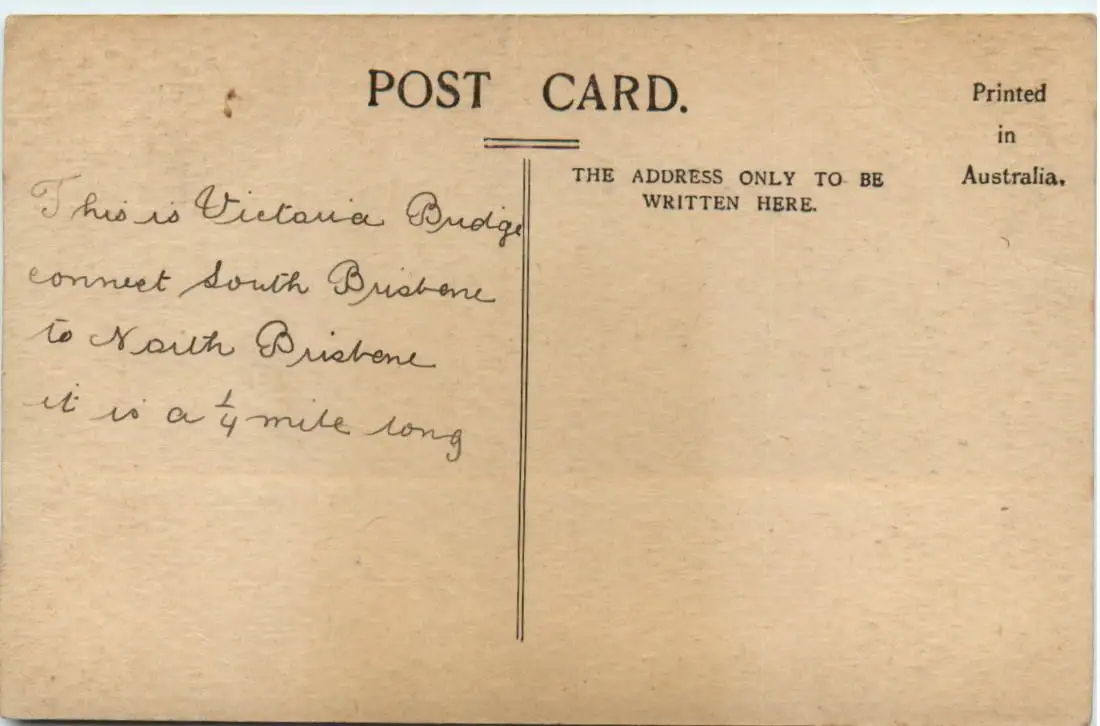 POST CARD.
Printed
in
Australia.
THE ADDRESS ONLY TO BE
WRITTEN HERE.
This is Victoria Bridge
connect South Brisbane
to North Brisbane
it is a 1/4 mile long